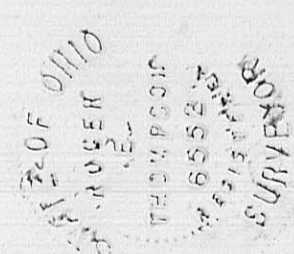 STATE OF OHIO
ROGER
E.
THOMPSON
6552
REGISTERED
SURVEYOR